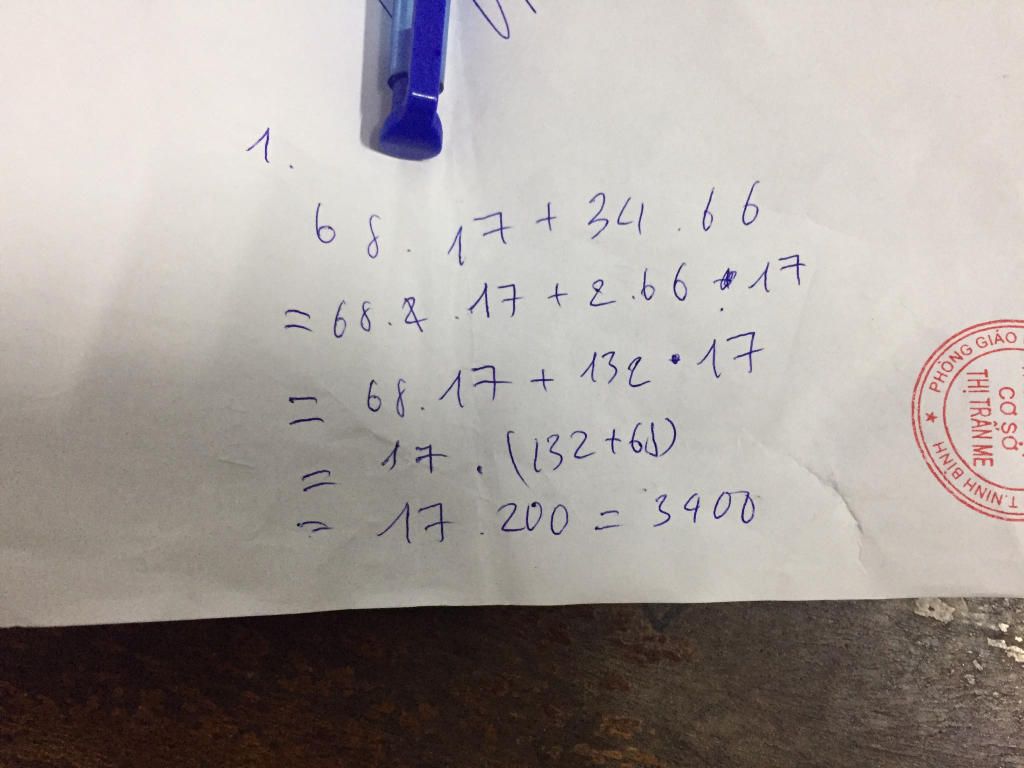 1.
68.17+34.66
=68.2.17+2.66.17
= 68.17+132.17
= 17.(132+68)
= 17.200=3400
PHÒNG GIÁO
CƠ SỞ
THỊ TRẤN ME
T.NINH BÌNH ★